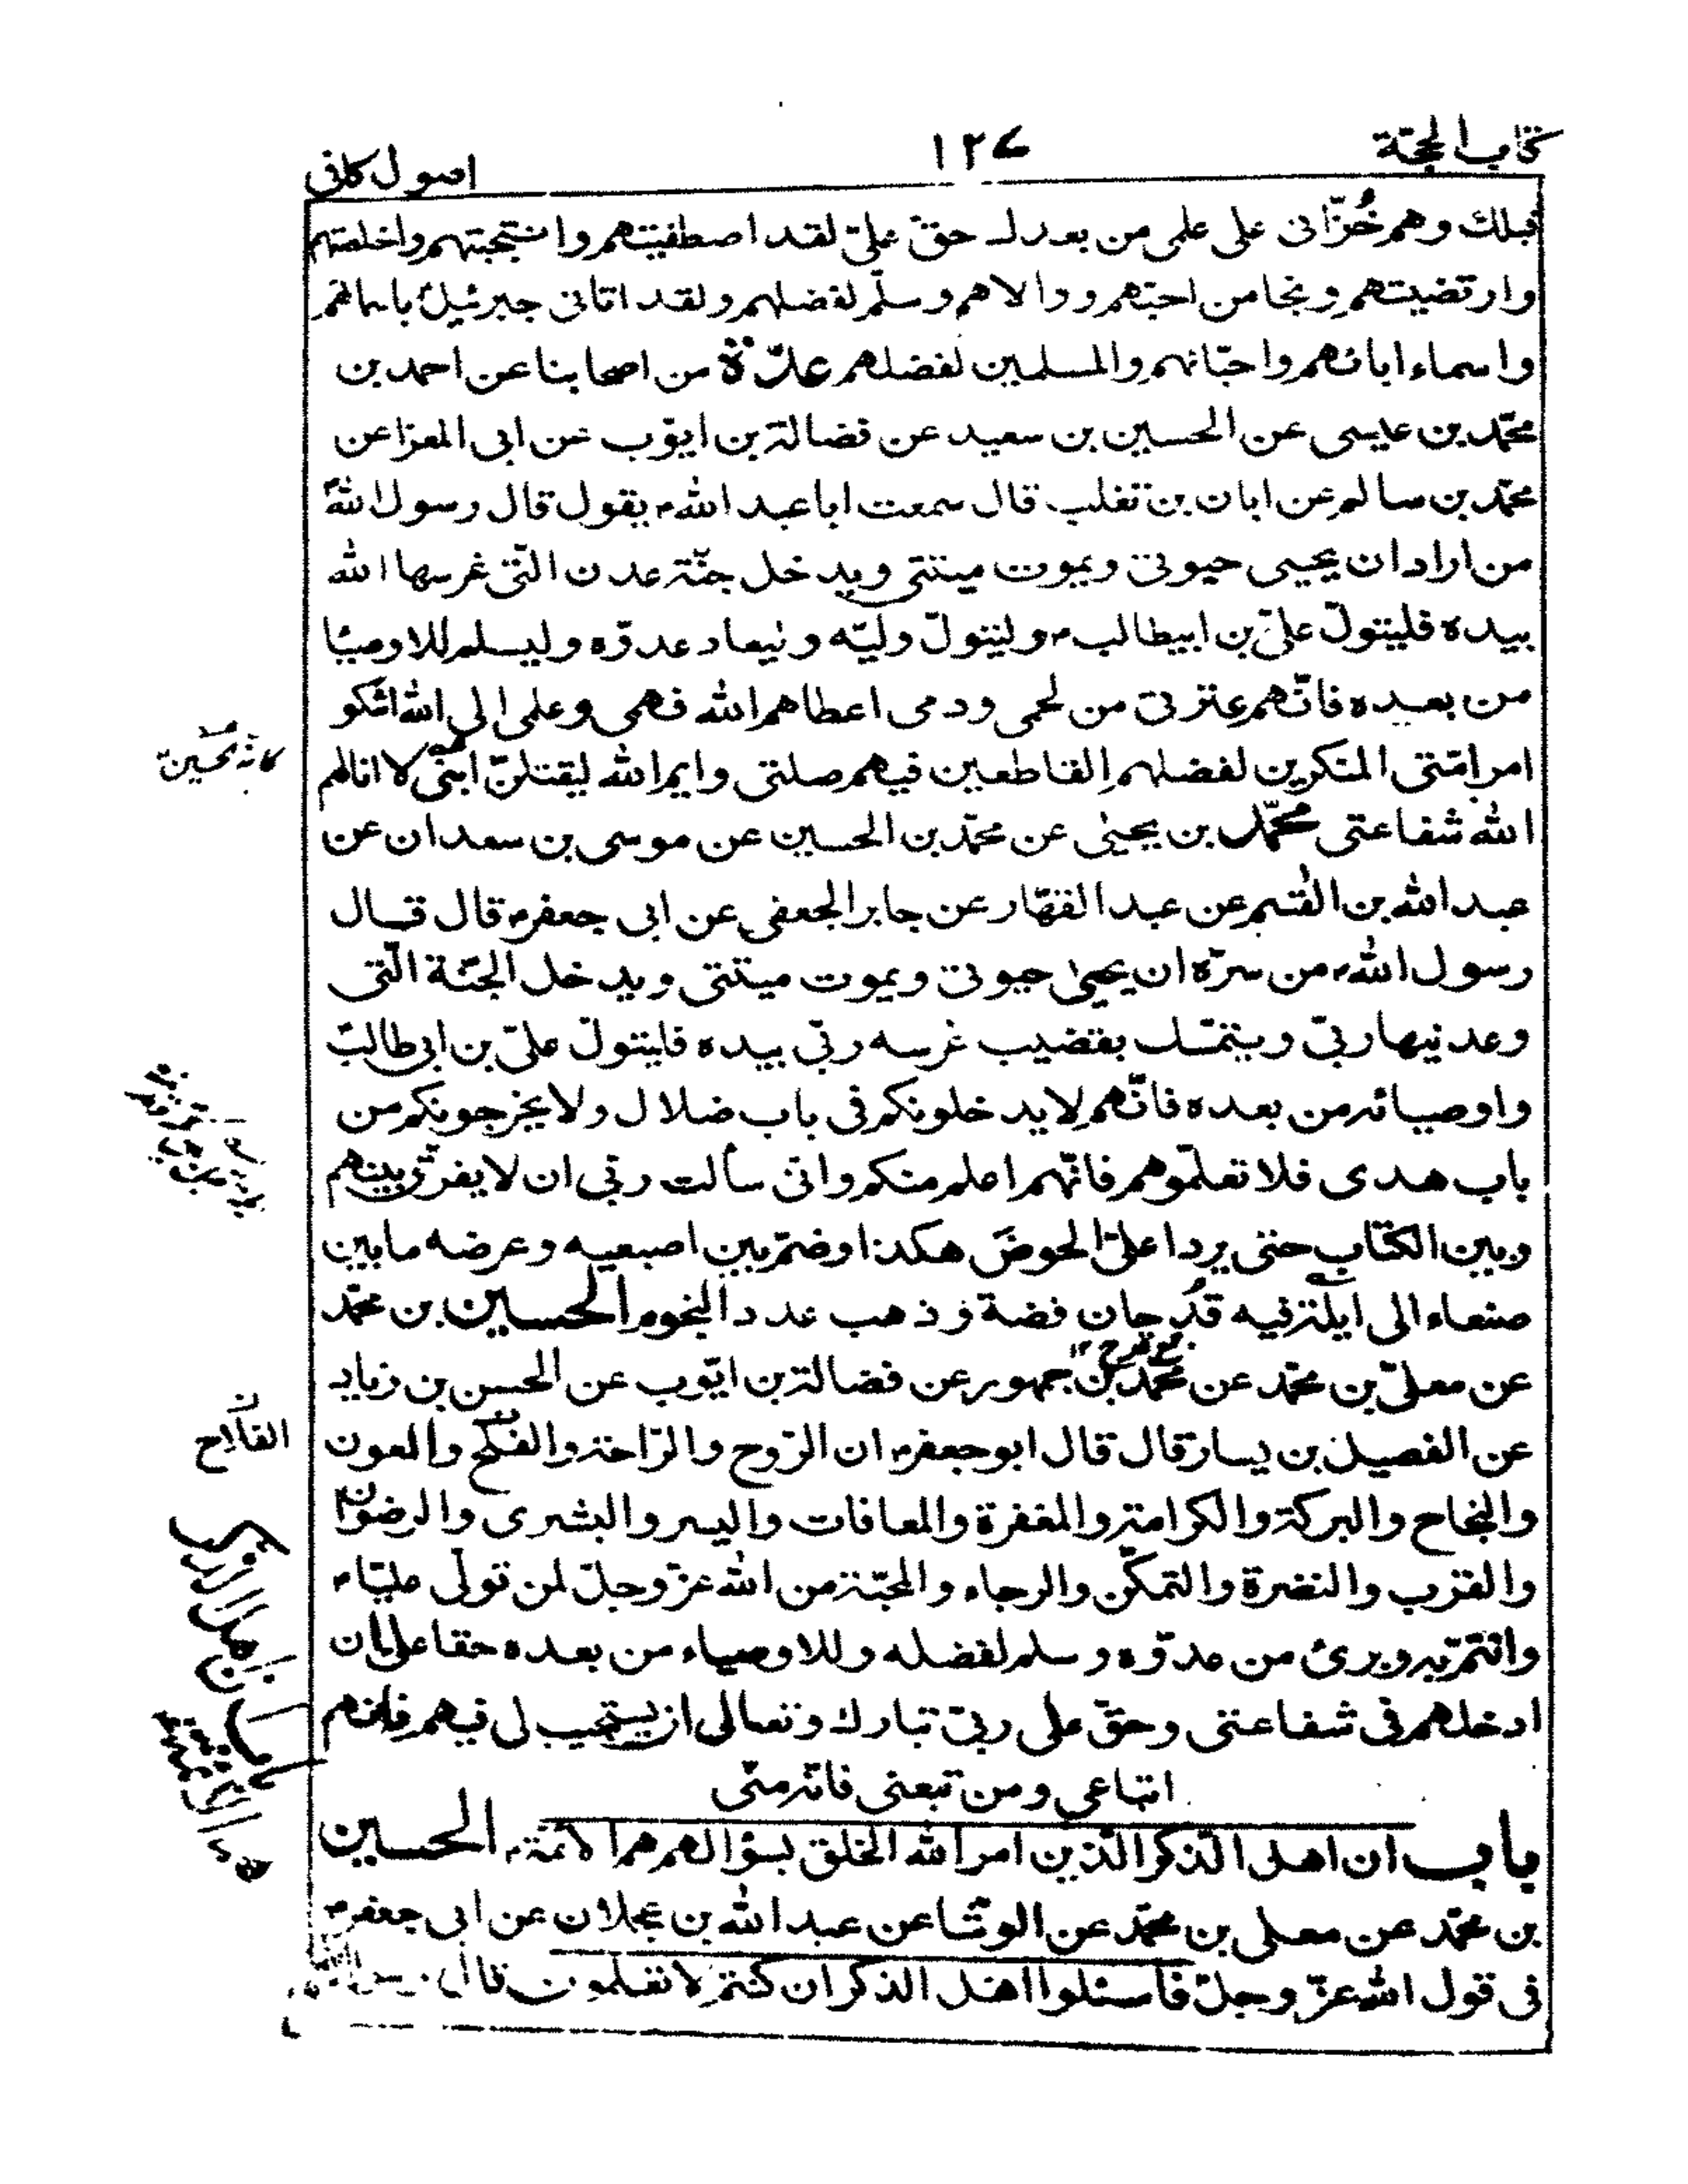 كتاب الحجة
١٢٧
اصول كافى
قبلك وهم خُزّانى على علمى من بعدك حقّ علىّ لقد اصطفيتهم وانتجبتهم واخلصتهم
وارتضيتهم ونجا من احبّهم ووالاهم وسلّم لفضلهم ولقد اتانى جبرئيل ع باسمائهم
واسماء ابائهم واحبّائهم والمسلمين لفضلهم عدّة من اصحابنا عن احمد بن
محمّد بن عيسى عن الحسين بن سعيد عن فضالة بن ايوّب عن ابى المعزا عن
محمّد بن سالم عن ابان بن تغلب قال سمعت ابا عبد الله ع يقول قال رسول الله ص
من اراد ان يحيى حيوتى ويموت ميتتى ويدخل جنّة عدن الّتى غرسها الله
بيده فليتولّ علىّ بن ابيطالب ع وليتولّ وليّه وليعاد عدوّه وليسلم للاوصيا
من بعده فانّهم عترتى من لحمى ودمى اعطاهم الله فهمى وعلمى الى الله اشكو
امر امّتى المنكرين لفضلهم القاطعين فيهم صلتى وايم الله ليقتلنّ ابنى لا انالهم
الله شفاعتى محمّد بن يحيىٰ عن محمّد بن الحسين عن موسى بن سعدان عن
عبد الله بن القٰسم عن عبد القهّار عن جابر الجعفى عن ابى جعفر ع قال قال
رسول الله ص من سرّه ان يحيىٰ حيوتى ويموت ميتتى ويدخل الجنّة الّتى
وعدنيها ربىّ ويتمسّك بقضيب غرسه ربّى بيده فليتولّ علىّ بن ابى طالب ع
واوصيائه من بعده فانّهم لا يدخلونكم فى باب ضلال ولا يخرجونكم من
باب هدى فلا تعلّموهم فانّهم اعلم منكم وانى سألت ربّى ان لا يفرّق بينهم
وبين الكتاب حتى يردا علىّ الحوض هكذا وضمّ بين اصبعيه وعرضه ما بين
صنعاء الى ايلة فيه قدحان فضة وذهب عدد النجوم الحسين بن محمّد
عن معلىّ بن محمّد عن محمّد بن جمهور عن فضالة بن ايّوب عن الحسن بن زياد
عن الفضيل بن يسار قال قال ابو جعفر ع ان الرّوح والرّاحة والفلج والعون
والنجاح والبركة والكرامة والمغفرة والمعافات واليسر والبشرى والرضوان
والقرب والنضرة والتمكّن والرجاء والمحبّة من الله عزّ وجلّ لمن تولّى عليّا ع
وائتمّ به وبرئ من عدوّه وسلم لفضله وللاوصياء من بعده حقا علىّ ان
ادخلهم فى شفاعتى وحقّ على ربىّ تبارك وتعالى ان يستجيب لى فيهم فانهم
اتباعى ومن تبعنى فانّه منّى
باب ان اهل الذكر الّذين امر الله الخلق بسؤالهم هم الائمّة ع الحسين
بن محمّد عن معلى بن محمّد عن الوشّا عن عبد الله بن عجلان عن ابى جعفر ع
فى قول الله عزّ وجلّ فاسئلوا اهل الذكر ان كنتم لا تعلمون قال
الفلاح